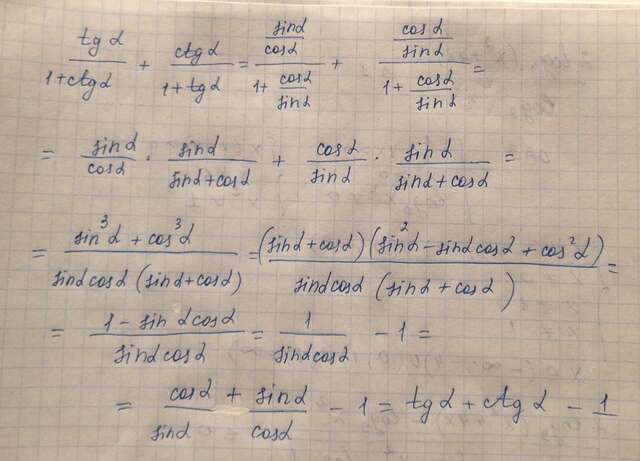 tg α / (1 + ctg α) + ctg α / (1 + tg α) = (sin α / cos α) / (1 + cos α / sin α) + (cos α / sin α) / (1 + cos α / sin α) =
= sin α / cos α · sin α / (sin α + cos α) + cos α / sin α · sin α / (sin α + cos α) =
= (sin³ α + cos³ α) / (sin α cos α (sin α + cos α)) = (sin α + cos α)(sin² α - sin α cos α + cos² α) / (sin α cos α (sin α + cos α)) =
= (1 - sin α cos α) / (sin α cos α) = 1 / (sin α cos α) - 1 =
= cos α / sin α + sin α / cos α - 1 = tg α + ctg α - 1